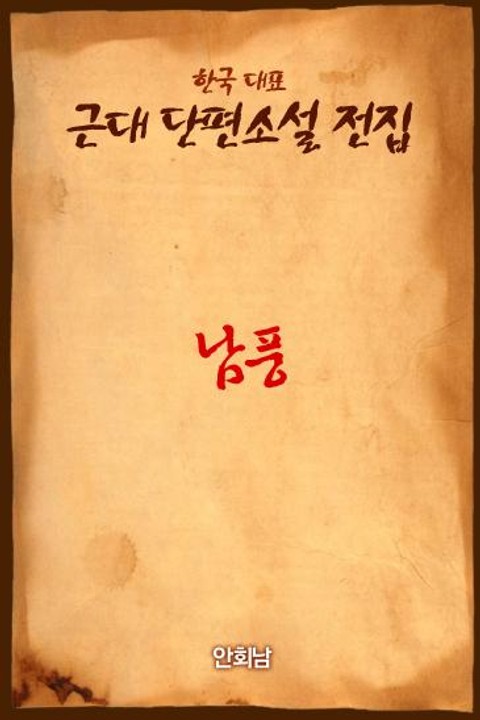 한국 대표
근대 단편소설 전집
남풍
안회남